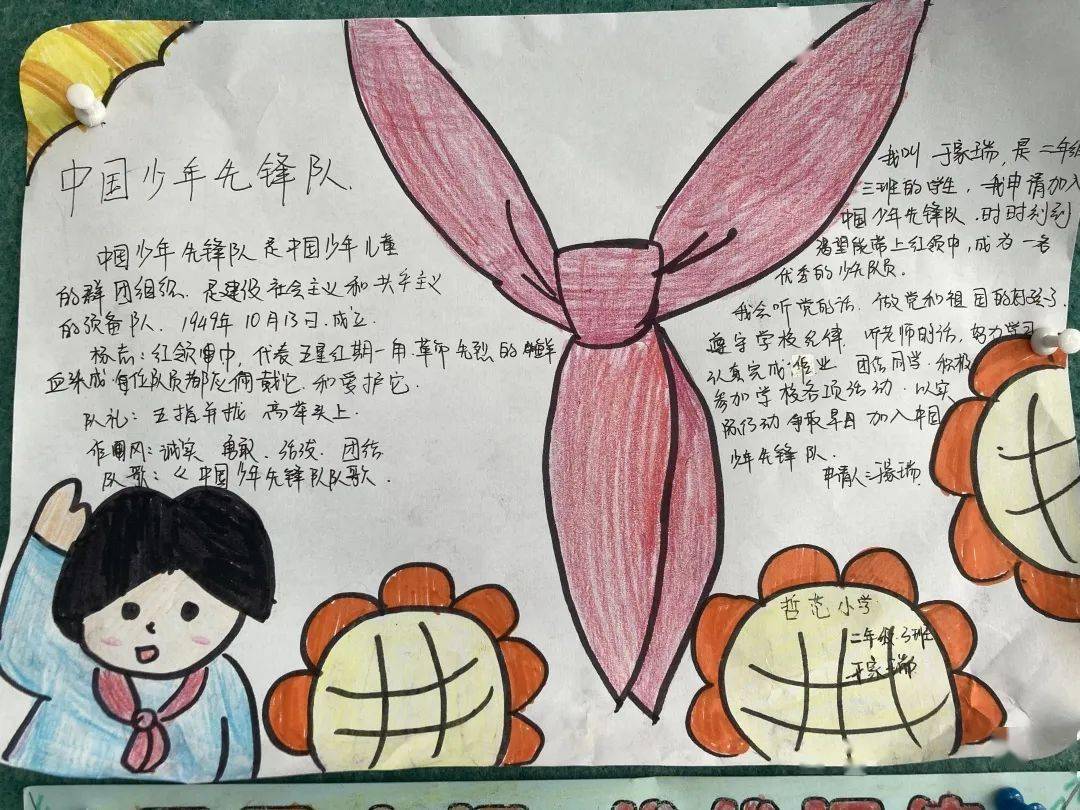 中国少年先锋队.
中国少年先锋队是中国少年儿童
的群团组织.是建设社会主义和共产主义
的预备队.1949年10月13日.成立.
标志:红领巾,代表五星红期一角.革命先烈的鲜
血染成.每位队员都应佩戴它.和爱护它.
队礼:五指并拢 高举头上.
作风:诚实 勇敢.活泼.团结
队歌:《中国少年先锋队队歌.
我叫于家瑞,是二年级
三班的学生,我申请加入
中国少年先锋队.时时刻刻
渴望能带上红领巾,成为一名
优秀的少先队员.
我会听党的话.做党和祖国的好孩子.
遵守学校纪律.听老师的话,努力学习
认真完成作业 团结同学.积极
参加学校各项活动.以实
际行动争取早日加入中国
少年先锋队.
申请人:于家瑞
哲范小学
二年级.3班
于家瑞